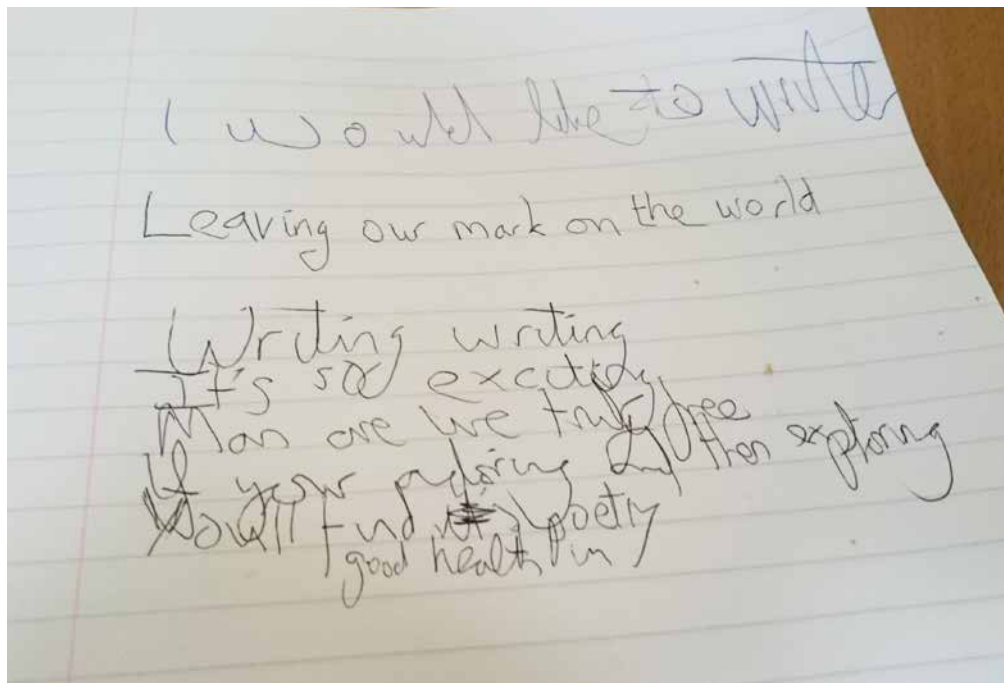 I would like to write
Leaving our mark on the world
Writing writing
It's so exciting
Man are we truly free
If your exploring and then exploring
You'll find poetry
good health in